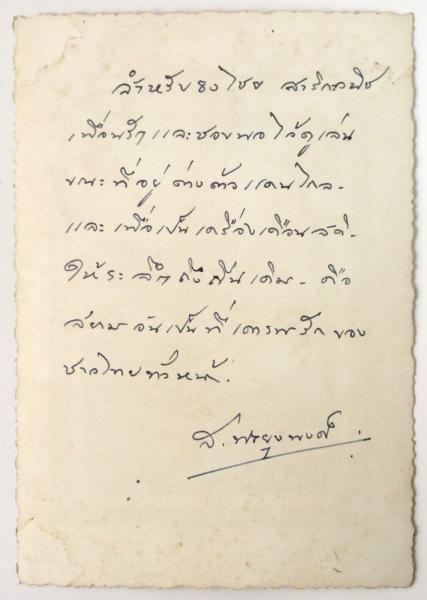 สำหรับธงไชย สาริกวณิช
เพื่อนรัก และชอบพอ ไว้ดูเล่น
ขณะที่อยู่ต่างด้าวแดนไกล -
และเพื่อเป็นเครื่องเตือนสติ -
ให้ระลึกถึงถิ่นเดิม - คือ
สยามอันเป็นที่เคารพรักของ
ชาวไทยทั่วหน้า.
ส.